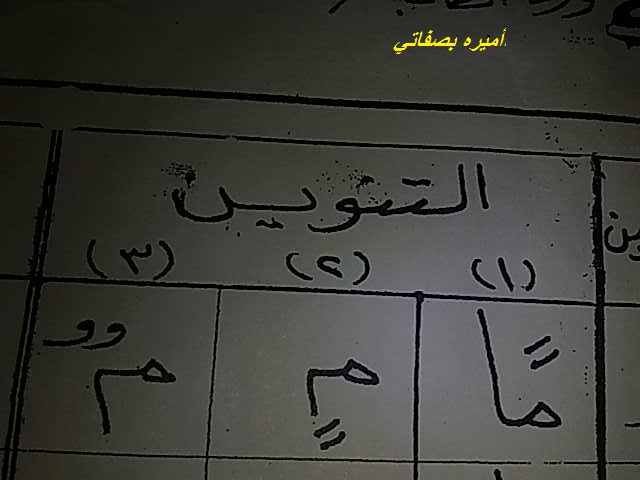 أميره بصفاتي
التنوين
(١) (٢) (٣)
مًا مٍ مٌ